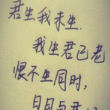 君生我未生
我生君已老
恨不生同时，
日日与君